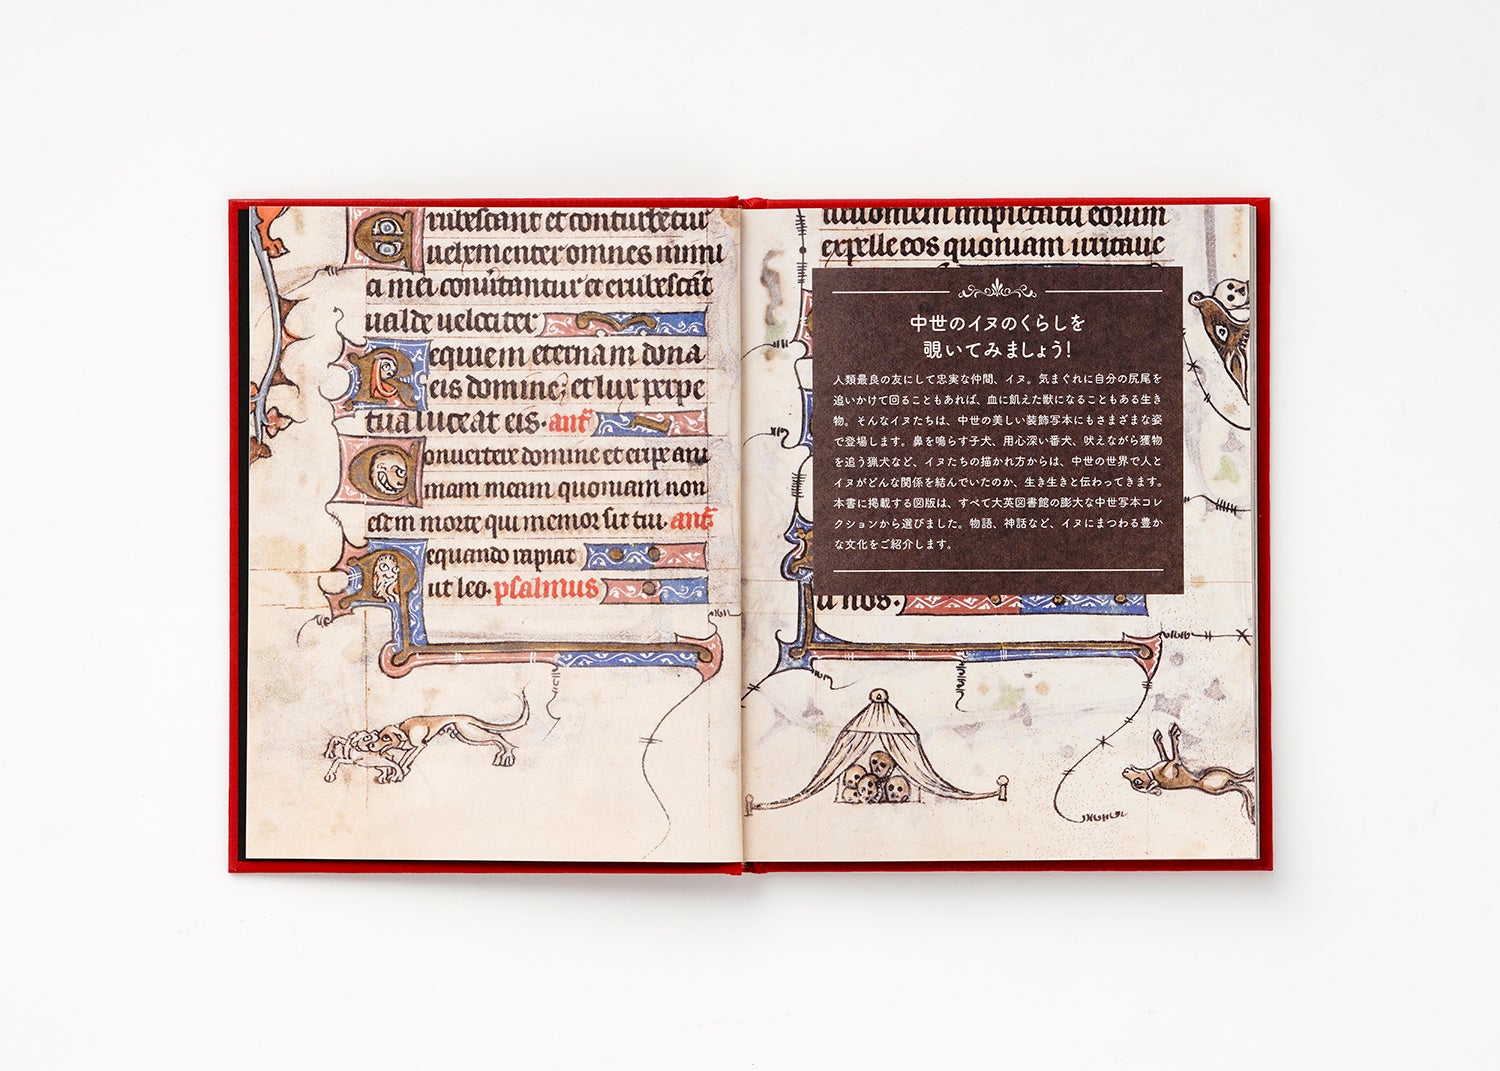 Erubescant et conturbētur
uehementer omnes inimi
ci mei conūtantur et erubescāt
ualde uelociter
Requiem eternam dona
eis domine; et lux perpe
tua luceat eis. anꝰ
Conuertere domine et eripe ani
mam meam quoniam non
est in morte qui memor sit tui. anꝰ
Nequando rapiat
ut leo. psalmus
impietatū eorum
expelle eos quoniam irritaue
中世のイヌのくらしを
覗いてみましょう!
人類最良の友にして忠実な仲間、イヌ。気まぐれに自分の尻尾を
追いかけて回ることもあれば、血に飢えた獣になることもある生き
物。そんなイヌたちは、中世の美しい装飾写本にもさまざまな姿
で登場します。鼻を鳴らす子犬、用心深い番犬、吠えながら獲物
を追う猟犬など、イヌたちの描かれ方からは、中世の世界で人と
イヌがどんな関係を結んでいたのか、生き生きと伝わってきます。
本書に掲載する図版は、すべて大英図書館の膨大な中世写本コレ
クションから選びました。物語、神話など、イヌにまつわる豊か
な文化をご紹介します。
nos.